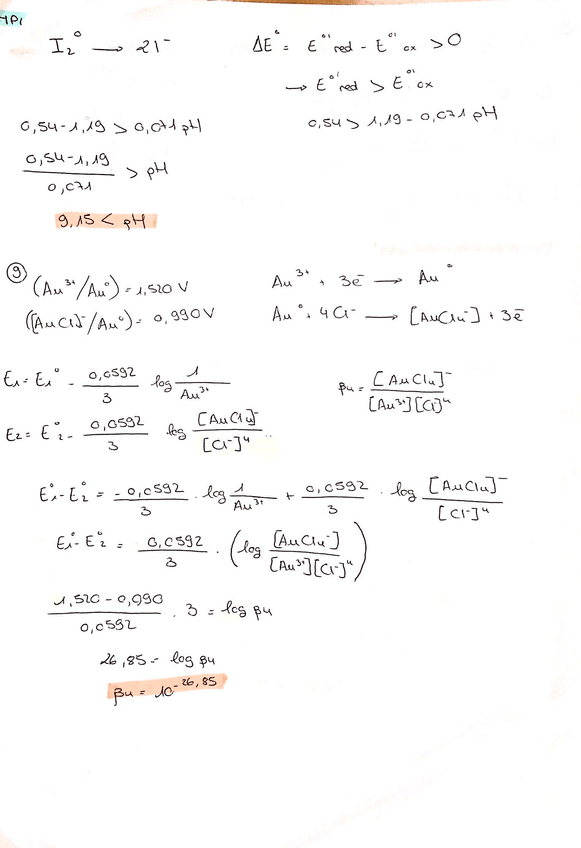 HPr
I₂° → 2I⁻
ΔE° = E°' red - E°' ox > 0
→ E°' red > E°' ox
0,54 > 1,19 - 0,071 pH
0,54-1,19 > 0,071 pH
0,54-1,19 / 0,071 > pH
9,15 < pH
⑨ (Au³⁺/Au°) = 1,520 V
([AuCl]⁻/Au°) = 0,990 V
Au³⁺ + 3e̅ → Au°
Au° + 4Cl⁻ → [AuCl₄⁻] + 3e̅
E₁ = E₁° - 0,0592 / 3 log 1 / Au³⁺
β₄ = [AuCl₄]⁻ / [Au³⁺][Cl]⁴
E₂ = E°₂ - 0,0592 / 3 log [AuCl₄]⁻ / [Cl⁻]⁴
E₁° - E₂° = - 0,0592 / 3 · log 1 / Au³⁺ + 0,0592 / 3 · log [AuCl₄]⁻ / [Cl⁻]⁴
E₁° - E₂° = 0,0592 / 3 · (log [AuCl₄⁻] / [Au³⁺][Cl⁻]⁴)
1,520 - 0,990 / 0,0592 · 3 = log β₄
26,85 = log β₄
β₄ = 10⁻²⁶,⁸⁵